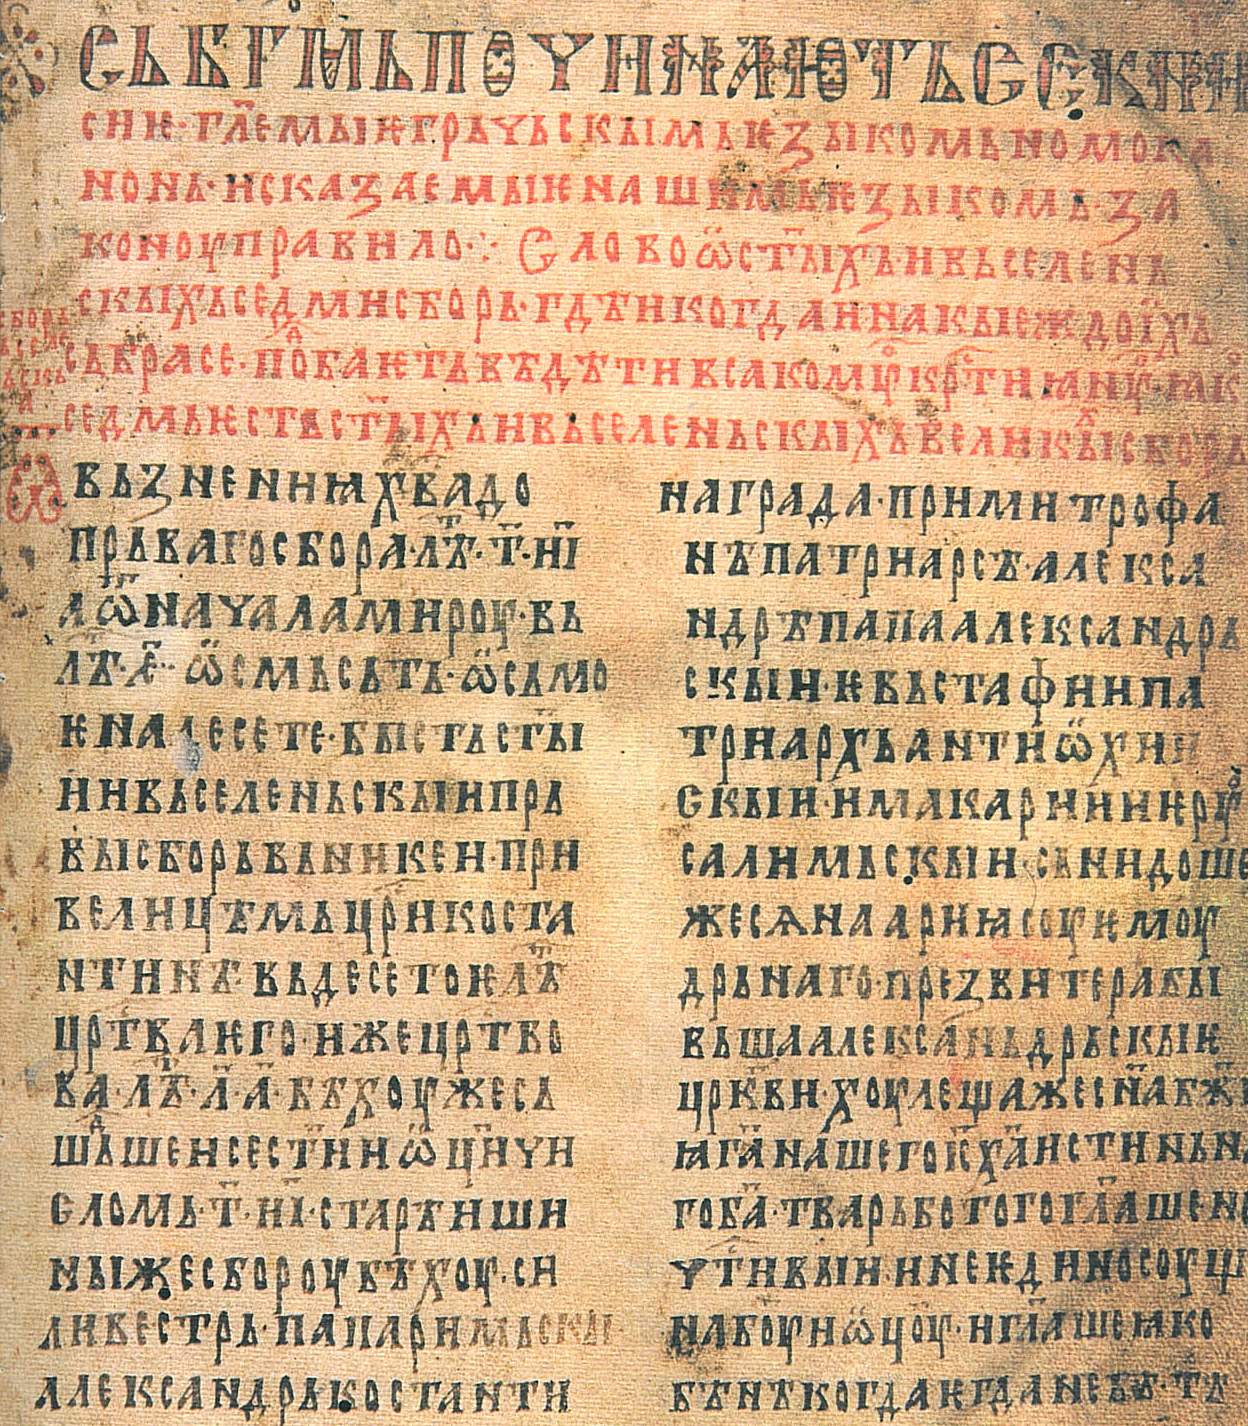 СЬ БГ҃МЬ ПОЧИНАЮТЬ СЕ КНИ
сиѥ· гл҃ѥмыѥ грьчьскымь ѥзыкомь номока
нонь· исказаемыѥ нашимь ѥзыкомь· за
коноу правило·:· Слово ѿ ст҃ыхь· и вьселень
скыхь седми сборь· гдѣ и когда и на кыеждо ихь
сьбра се· пⷪ҇баѥть вѣдѣти всакомꙋ крⷭ҇тиꙗнинꙋ· ꙗк
седмь ѥсть ст҃ыхь и вьселеньскыхь великыⷯ сборь
Ѿ вьзнениꙗ хв҃а до
прьваго сбора· лѣⷮ· т҃· и҃і
а ѿ начала мироу· вь
лѣⷮ· ҂е҃· ѡсмьсьть· ѡсьмо
ѥнадесете· бысть ст҃ы
и и вьселеньскыи прь
вы сборь вь никеи· при
велицѣмь цр҃и коста
нтинѣ· вь десетоѥ лѣⷮ
црⷭ҇тва ѥго· иже црⷭ҇тво
ва· лѣⷮ· л҃· а҃· бѣхоу же сь
шьⷣше и се ст҃ии ѡц҃и чи
сломь· т҃· и҃і· старѣиши
ны же сбороу бѣхоу· си
ливестрь· папа римьскы·
александрь костанти
награда· при митрофа
нѣ патриарсѣ· алекса
ндрѣ папа александрь
скыи· ѥвьстафии па
триархь антиѡхии
скыи· и макарии ѥроуⷭ
салимьскыи· сьнидоше
же се на ариꙗ соуѥмоу
дрьнаго· презвитера бы
вьша александрьскыѥ
цркⷡ҇и· хоулеща же сн҃а бж҃и
ꙗ г҃а нашего іс҃ х҃а истиньна
го б҃а· тварь бо того гл҃аше не
чтⷭ҇ивыи· и неѥдиносоущ
на б҃оу и ѡц҃оу· и гл҃аше ꙗко
бѣ нѣкогда ѥгда не бѣ· тѣ